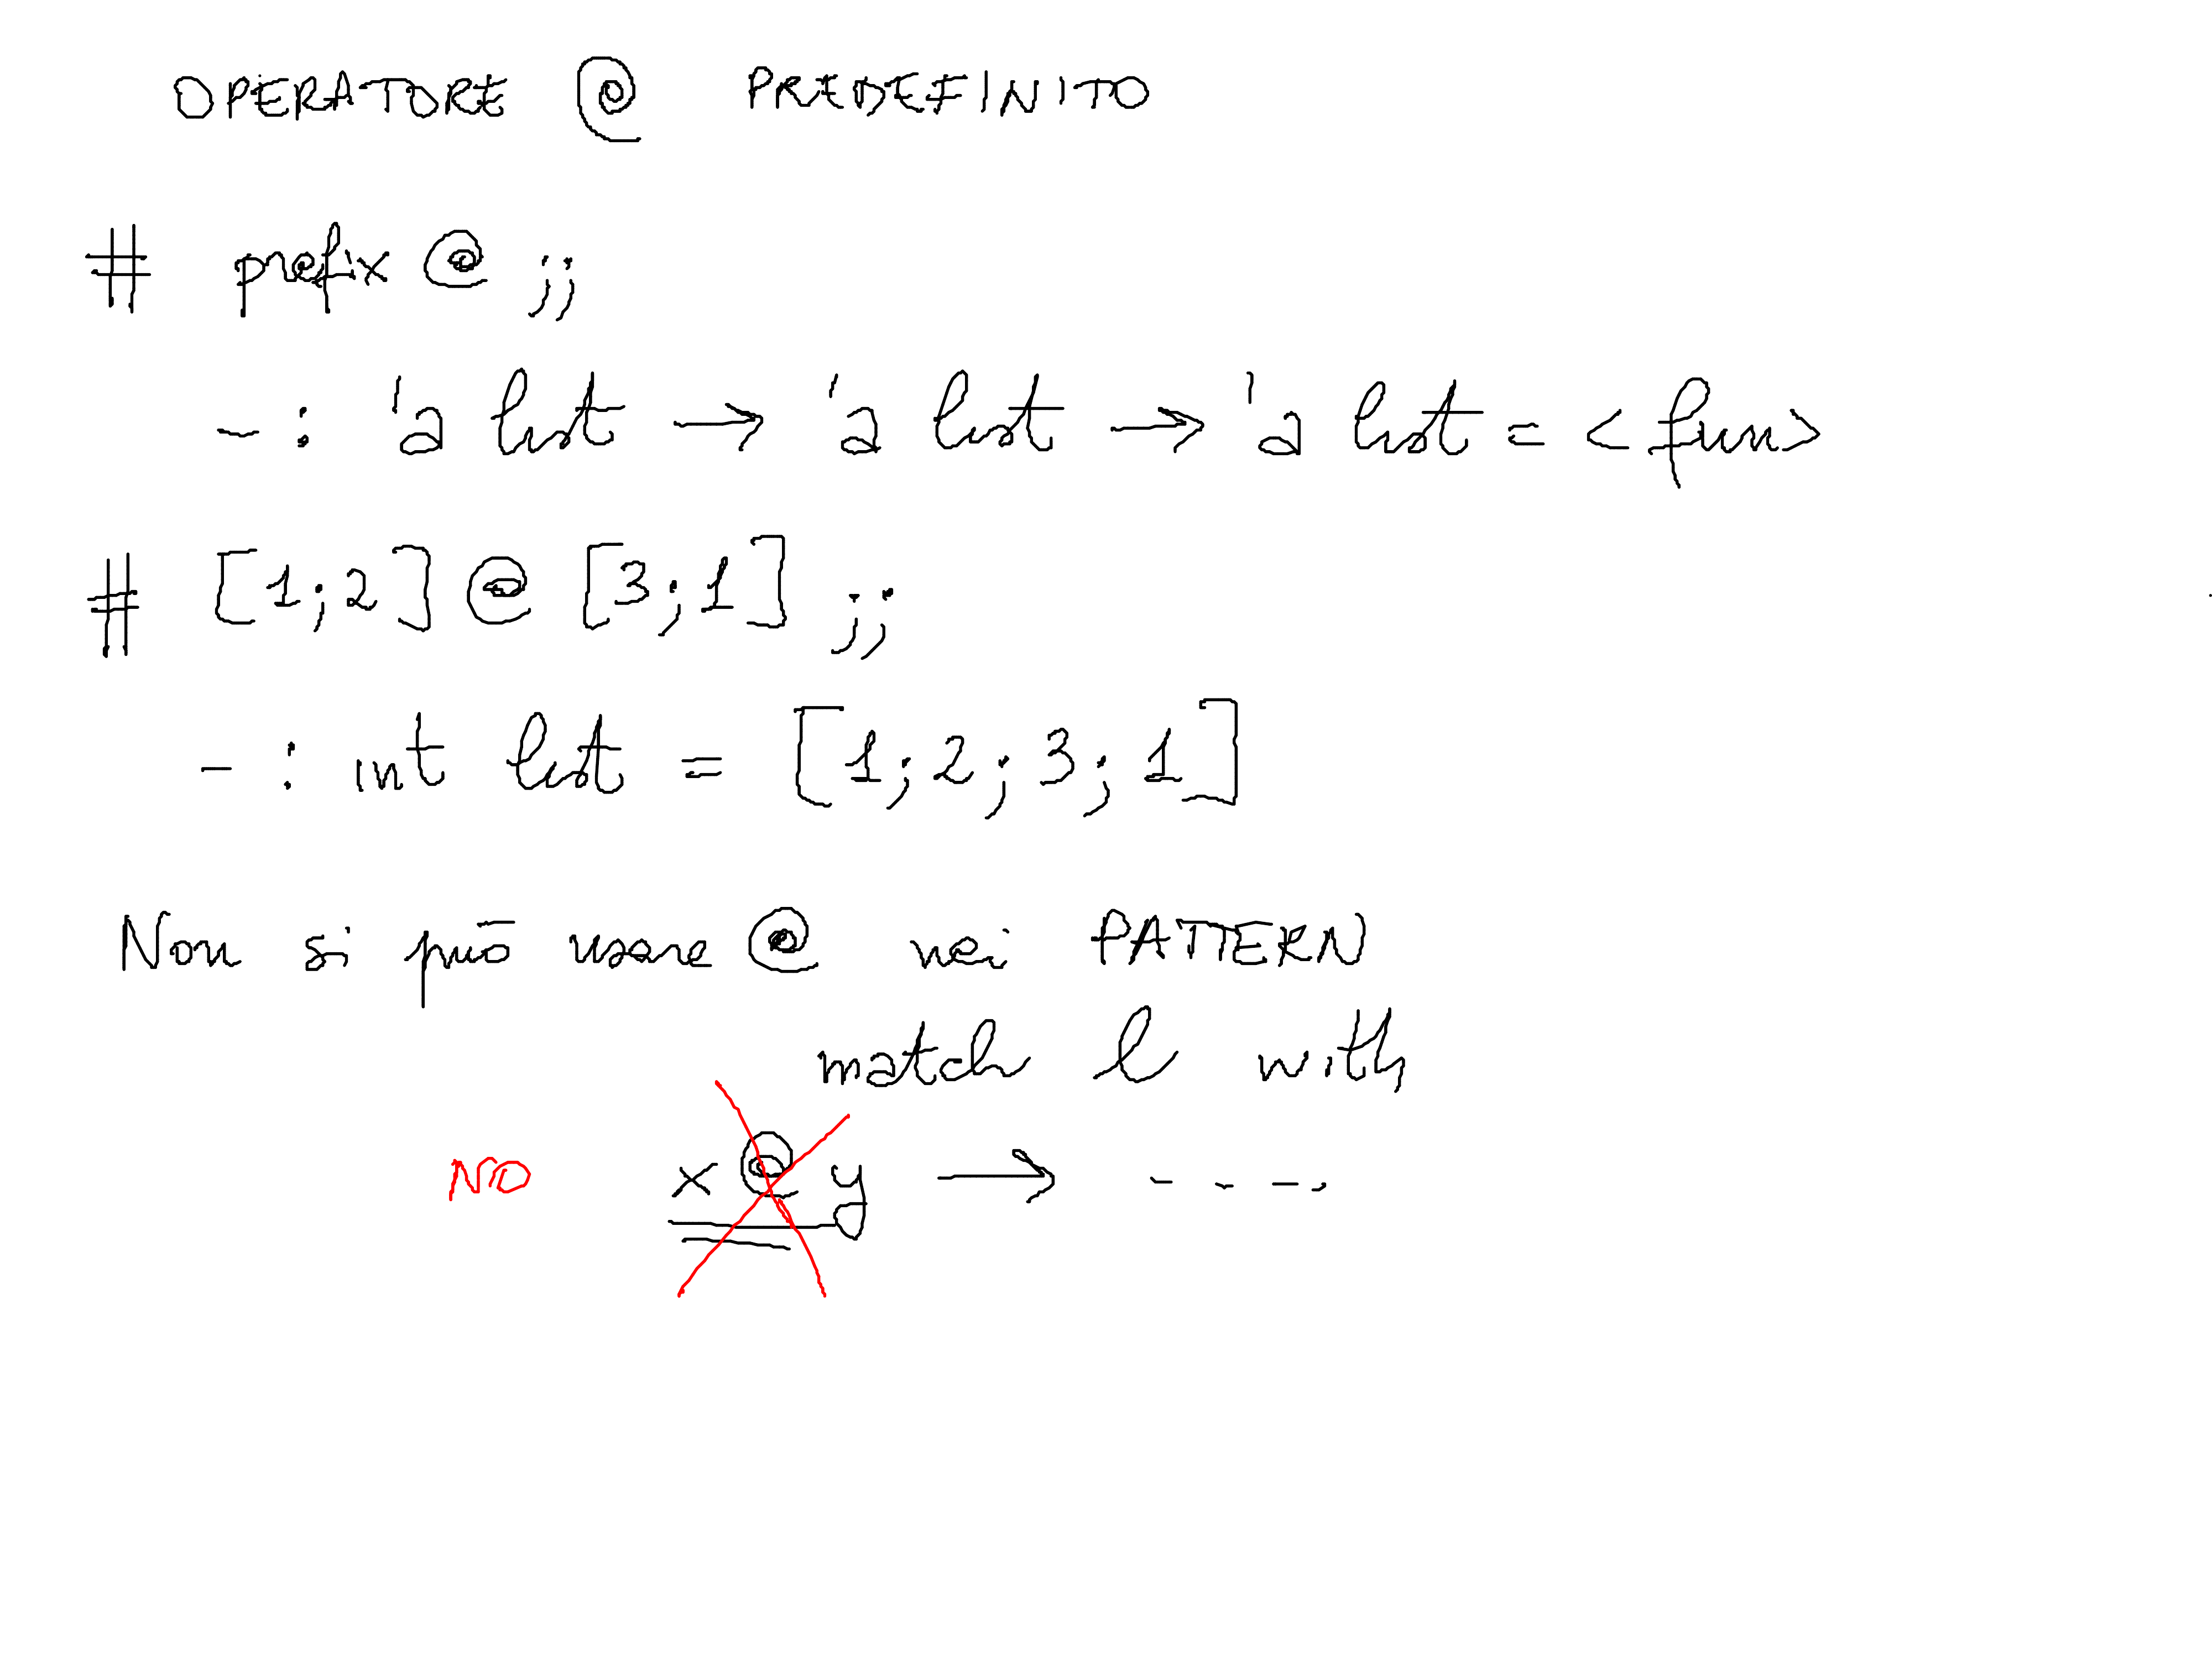 OPERATORE @ PREDEFINITO
# prefix @ ;;
- : 'a list → 'a list → 'a list = <fun>
# [1;2] @ [3;1] ;;
- : int list = [1;2;3;1]
Non si può usare @ nei PATTERN
match l with
NO x @ y → ----